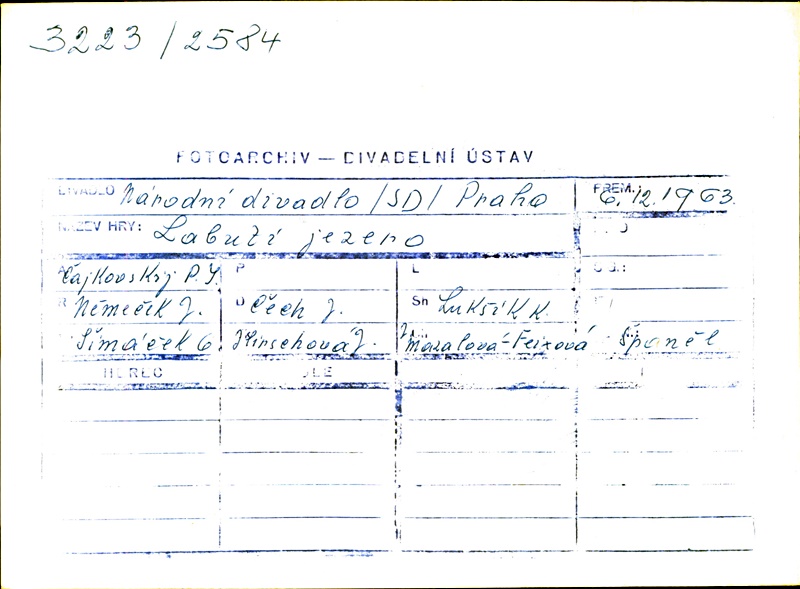 3223/2584
FOTOARCHIV — DIVADELNÍ ÚSTAV
DIVADLO Národní divadlo /SD/ Praha PREM.: 6.12.1963.
NÁZEV HRY: Labutí jezero
A Čajkovskij P. P L
R Němeček J. Čech J. Sh Lukšík K.
Šimáček O. Hirschová J. Mazalová-Feixová Španěl
HEREC